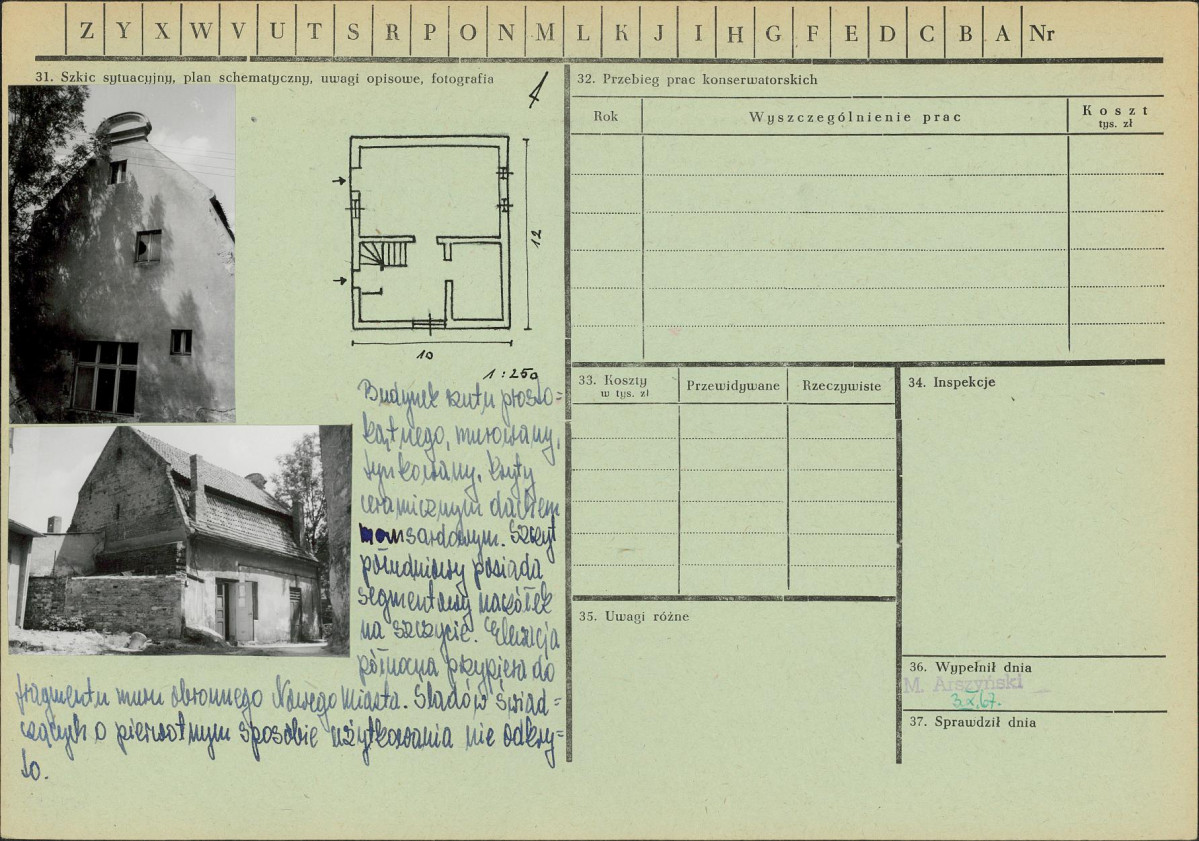 Z Y X W V U T S R P O N M L K J I H G F E D C B A Nr
31. Szkic sytuacyjny, plan schematyczny, uwagi opisowe, fotografia
12
10
1:250
Budynek rzutu prosto=
kątnego, murowany,
tynkowany. Kryty
ceramicznym dachem
mansardowym. Szczyt
południowy posiada
segmentowy naczółek
na szczycie. Elewacja
północna przypiera do
fragmentu muru obronnego Nowego Miasta. Śladów świad=
czących o pierwotnym sposobie użytkowania nie odkry=
to.
32. Przebieg prac konserwatorskich
Rok
Wyszczególnienie prac
Koszt
tys. zł
33. Koszty
w tys. zł
Przewidywane
Rzeczywiste
34. Inspekcje
35. Uwagi różne
36. Wypełnił dnia
M. Arszyński
3.X.67.
37. Sprawdził dnia